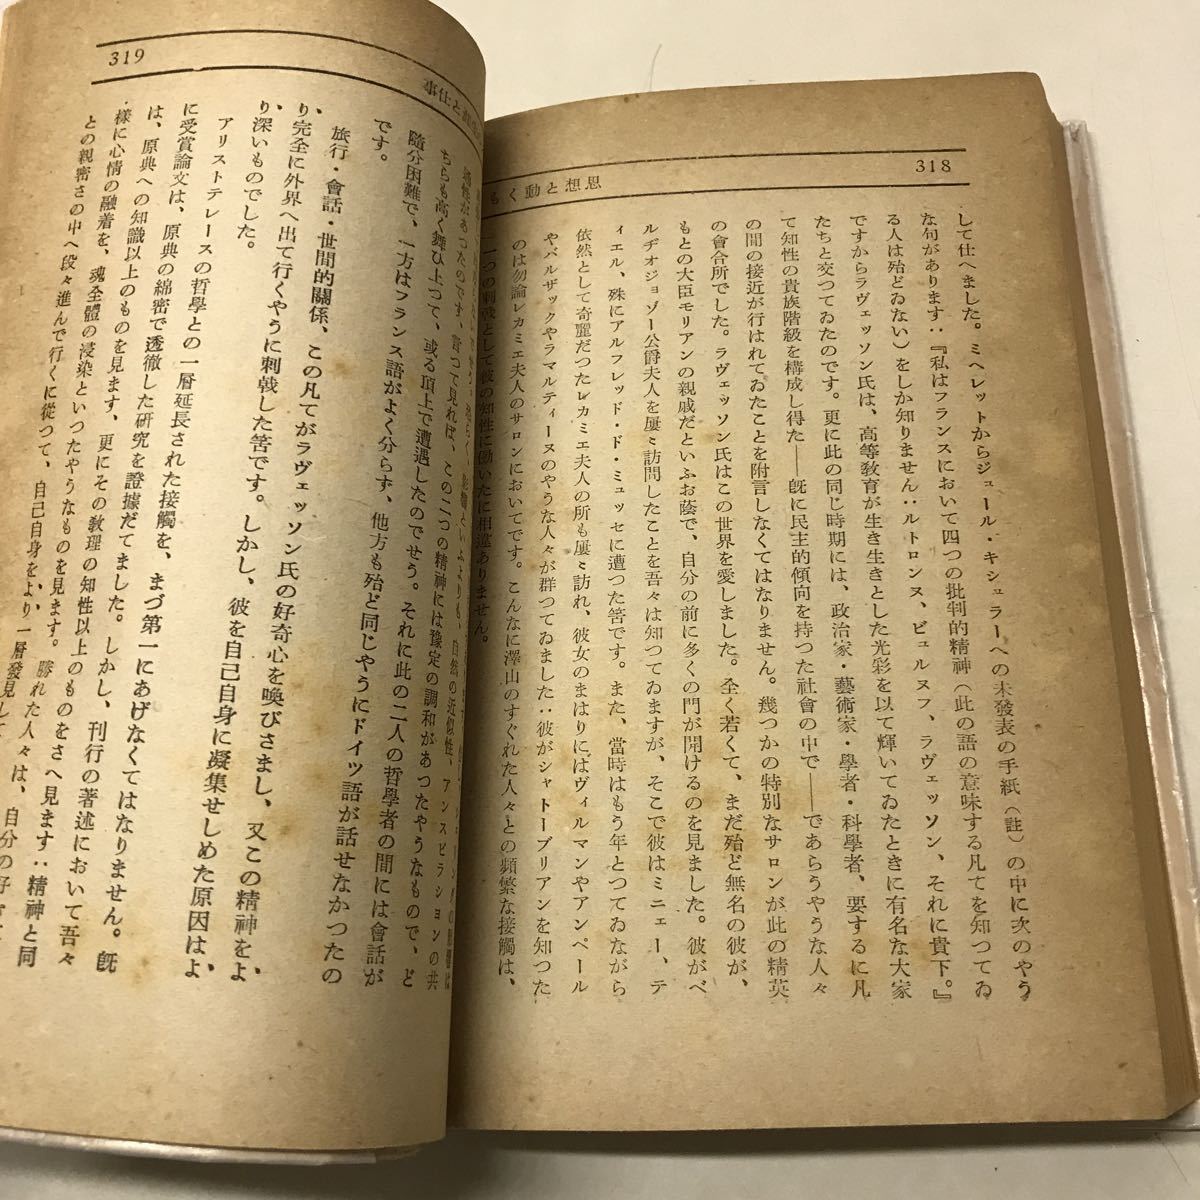 318
思想と動くもの
して仕へました。ミヘレットからジュール・キシェラーへの未發表の手紙（註）の中に次のやう
な句があります：『私はフランスにおいて四つの批判的精神（此の語の意味する凡てを知つてゐ
る人は殆どゐない）をしか知りません：ルトロンヌ、ビュルヌフ、ラヴェッソン、それに貴下。』
ですからラヴェッソン氏は、高等敎育が生き生きとした光彩を以て輝いてゐたときに有名な大家
たちと交つてゐたのです。更に此の同じ時期には、政治家・藝術家・學者・科學者、要するに凡
て知性の貴族階級を構成し得た――旣に民主的傾向を持つた社會の中で――であらうやうな人々
の間の接近が行はれてゐたことを附言しなくてはなりません。幾つかの特別なサロンが此の精英
の會合所でした。ラヴェッソン氏はこの世界を愛しました。全く若くて、まだ殆ど無名の彼が、
もとの大臣モリアンの親戚だといふお蔭で、自分の前に多くの門が開けるのを見ました。彼がベ
ルヂオジョゾー公爵夫人を屢〻訪問したことを吾々は知つてゐますが、そこで彼はミニェー、テ
ィエル、殊にアルフレッド・ド・ミュッセに遭つた筈です。また、當時はもう年とつてゐながら
依然として奇麗だつたレカミエ夫人の所も屢〻訪れ、彼女のまはりにはヴィルマンやアンペール
やバルザックやラマルティーヌのやうな人々が群つてゐました：彼がシャトーブリアンを知つた
のは勿論レカミエ夫人のサロンにおいてです。こんなに澤山のすぐれた人々との頻繁な接觸は、
一つの刺戟として彼の知性に働いたに相違ありません。
319
と仕事
ちらも高く舞ひ上つて、或る頂上で遭遇したのでせう。それに此の二人の哲學者の間には會話が
隨分困難で、一方はフランス語がよく分らず、他方も殆ど同じやうにドイツ語が話せなかつたの
です。
旅行・會話・世間的關係、この凡てがラヴェッソン氏の好奇心を喚びさまし、又この精神をよ
り完全に外界へ出て行くやうに刺戟した筈です。しかし、彼を自己自身に凝集せしめた原因はよ
り深いものでした。
アリストテレースの哲學との一層延長された接觸を、まづ第一にあげなくてはなりません。旣
に受賞論文は、原典の綿密で透徹した硏究を證據だてました。しかし、刊行の著述において吾々
は、原典への知識以上のものを見ます、更にその敎理の知性以上のものをさへ見ます：精神と同
樣に心情の融着を、魂全體の浸染といつたやうなものを見ます。勝れた人々は、自分の好
との親密さの中へ段々進んで行くに從つて、自己自身をより一層發見して